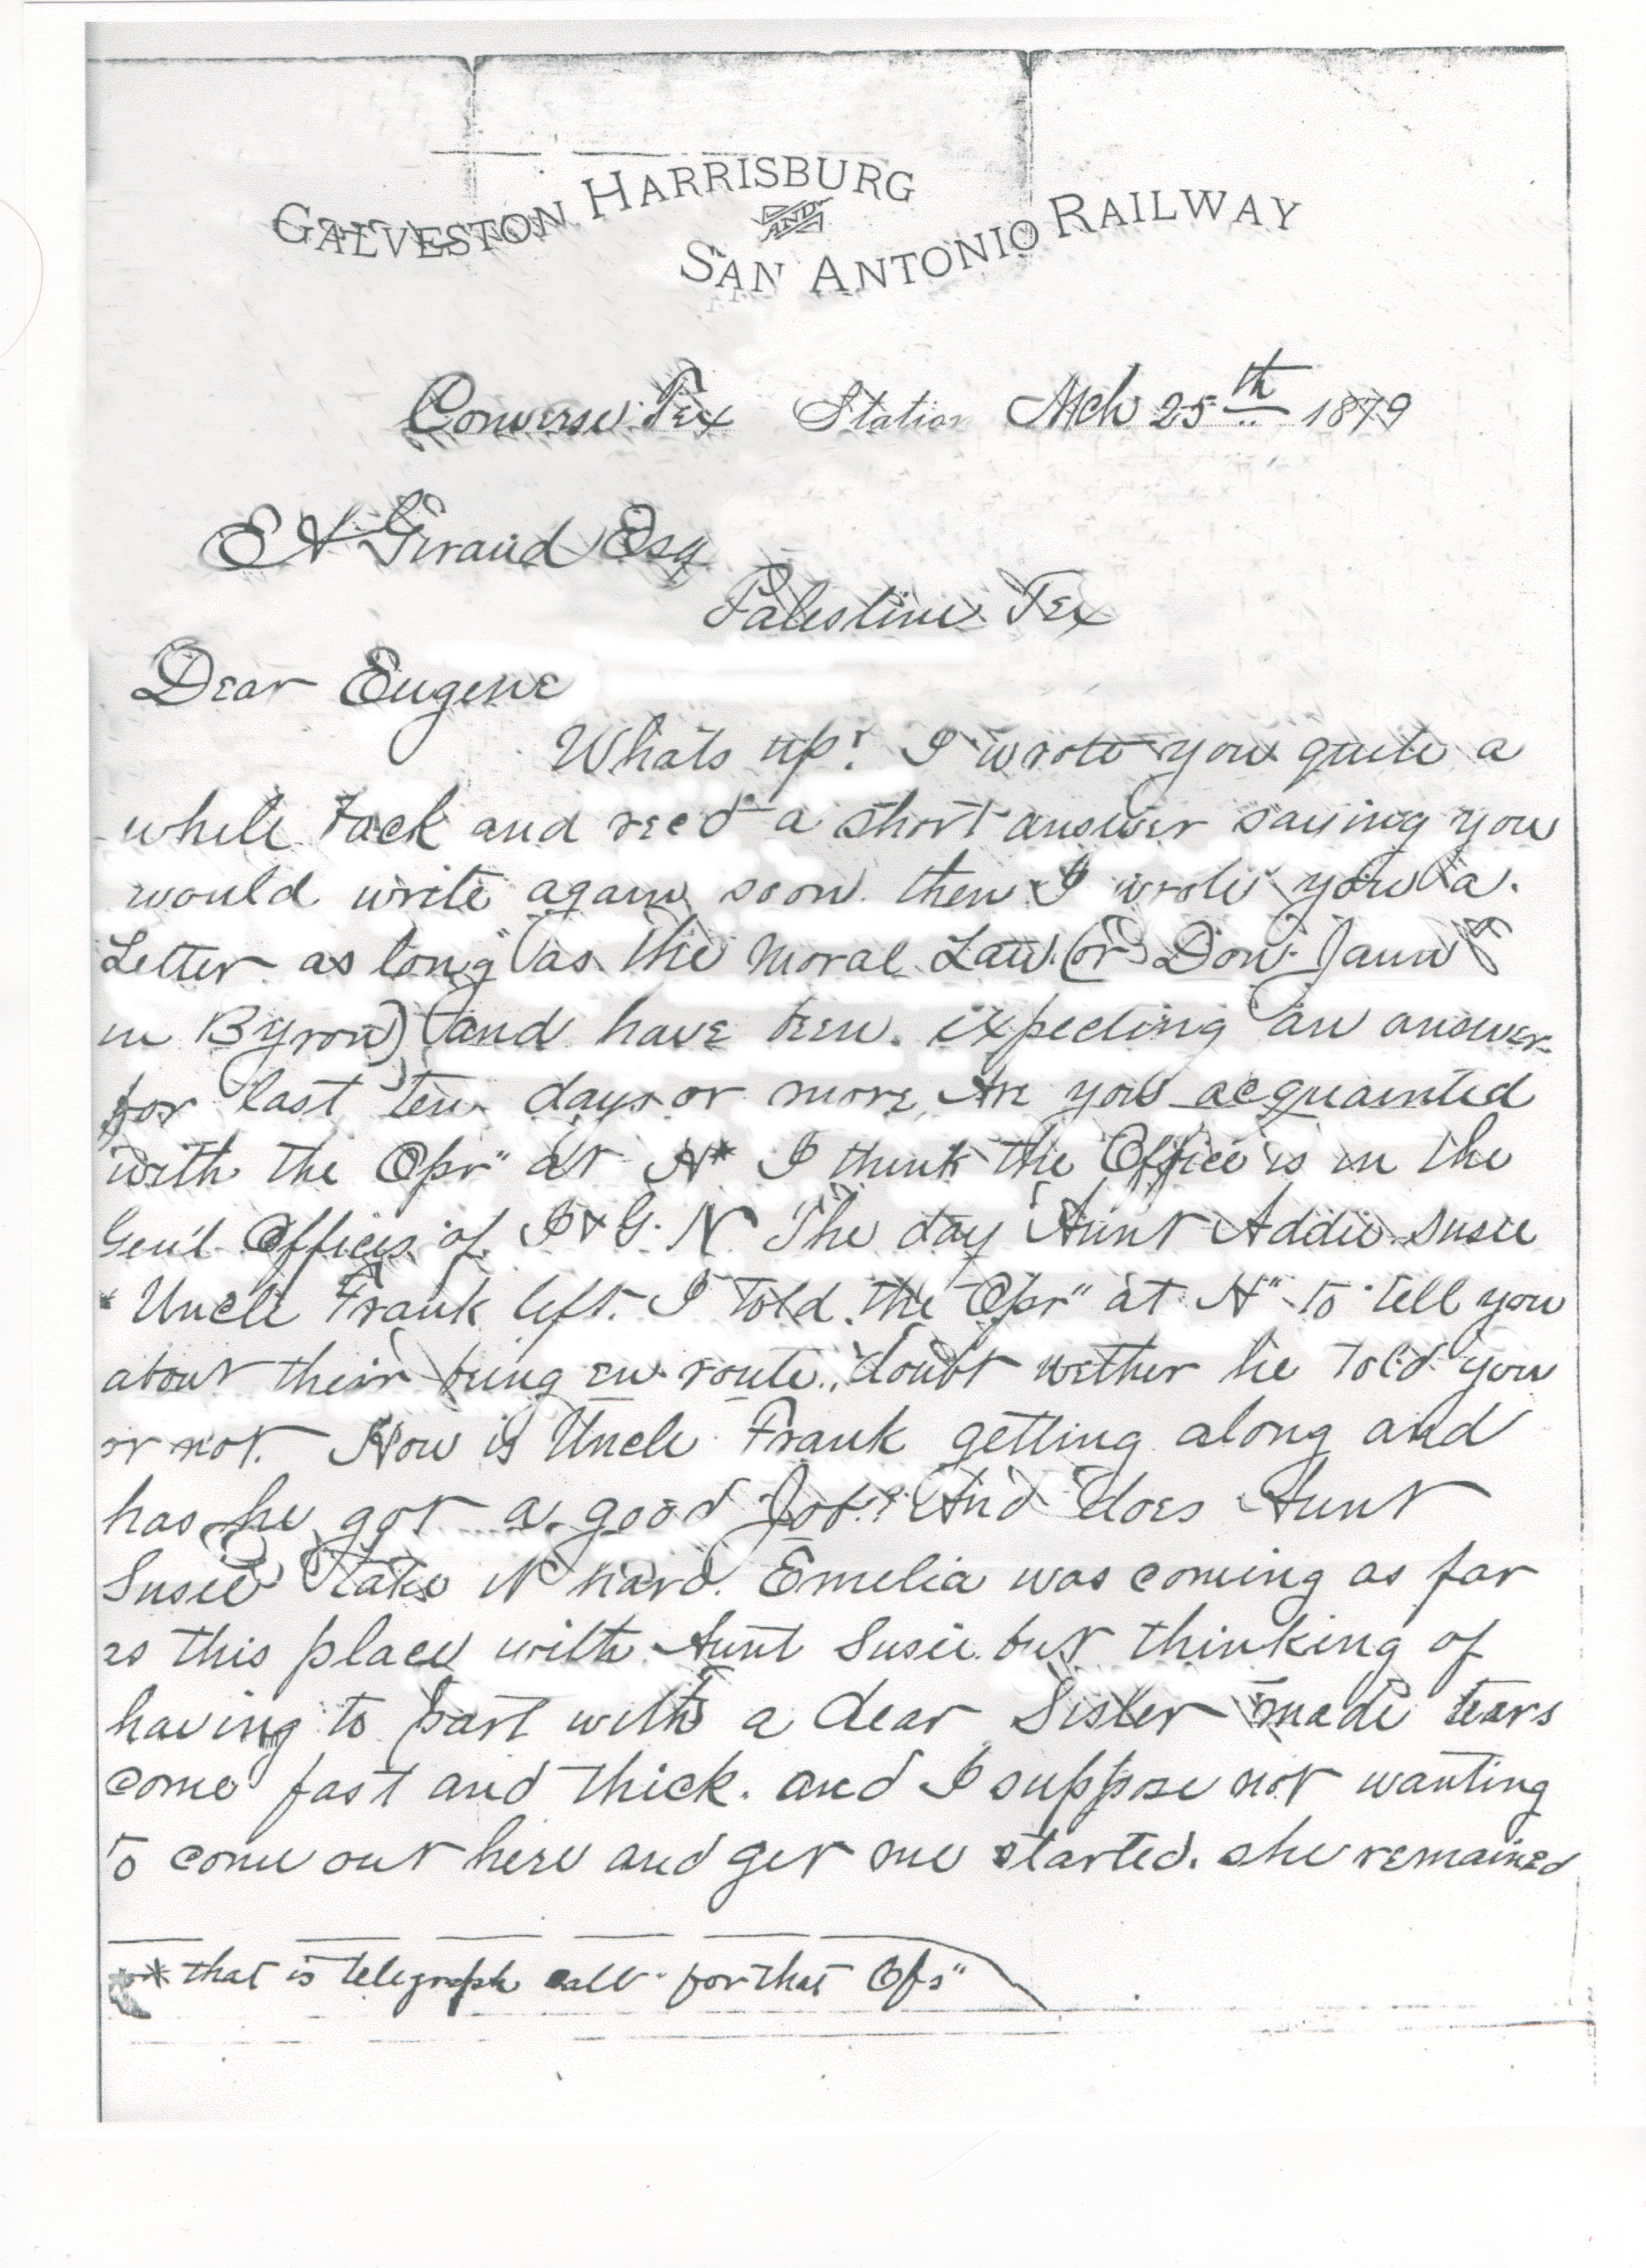 GALVESTON HARRISBURG
AND
SAN ANTONIO RAILWAY
Converse Tex Station Mch 25th 1879
E A Giraud Esq
Palestine Tex
Dear Eugene
Whats up? I wrote you quite a
while back and recd a short answer saying you
would write again soon. then I wrote you a.
Letter as long as the Moral Law (or Don Jaun
in Byron) and have been. expecting an answer
for last ten days or more, Are you acquainted
with the Opr" at H* I think the Office is in the
Gen'l Offices of I & G. N. The day Aunt Addie Susie
& Uncle Frank left. I told the Opr" at H" to tell you
about their being en route., doubt wether he told you
or not. How is Uncle Frank getting along and
has he got a good Job? And does Aunt
Susie take it hard. Emelia was coming as far
as this place with Aunt Susie but thinking of
having to part with a dear Sister made tears
come fast and thick. and I suppose not wanting
to come out here and get me started. she remained
* that is telegraph call for that Ofs"